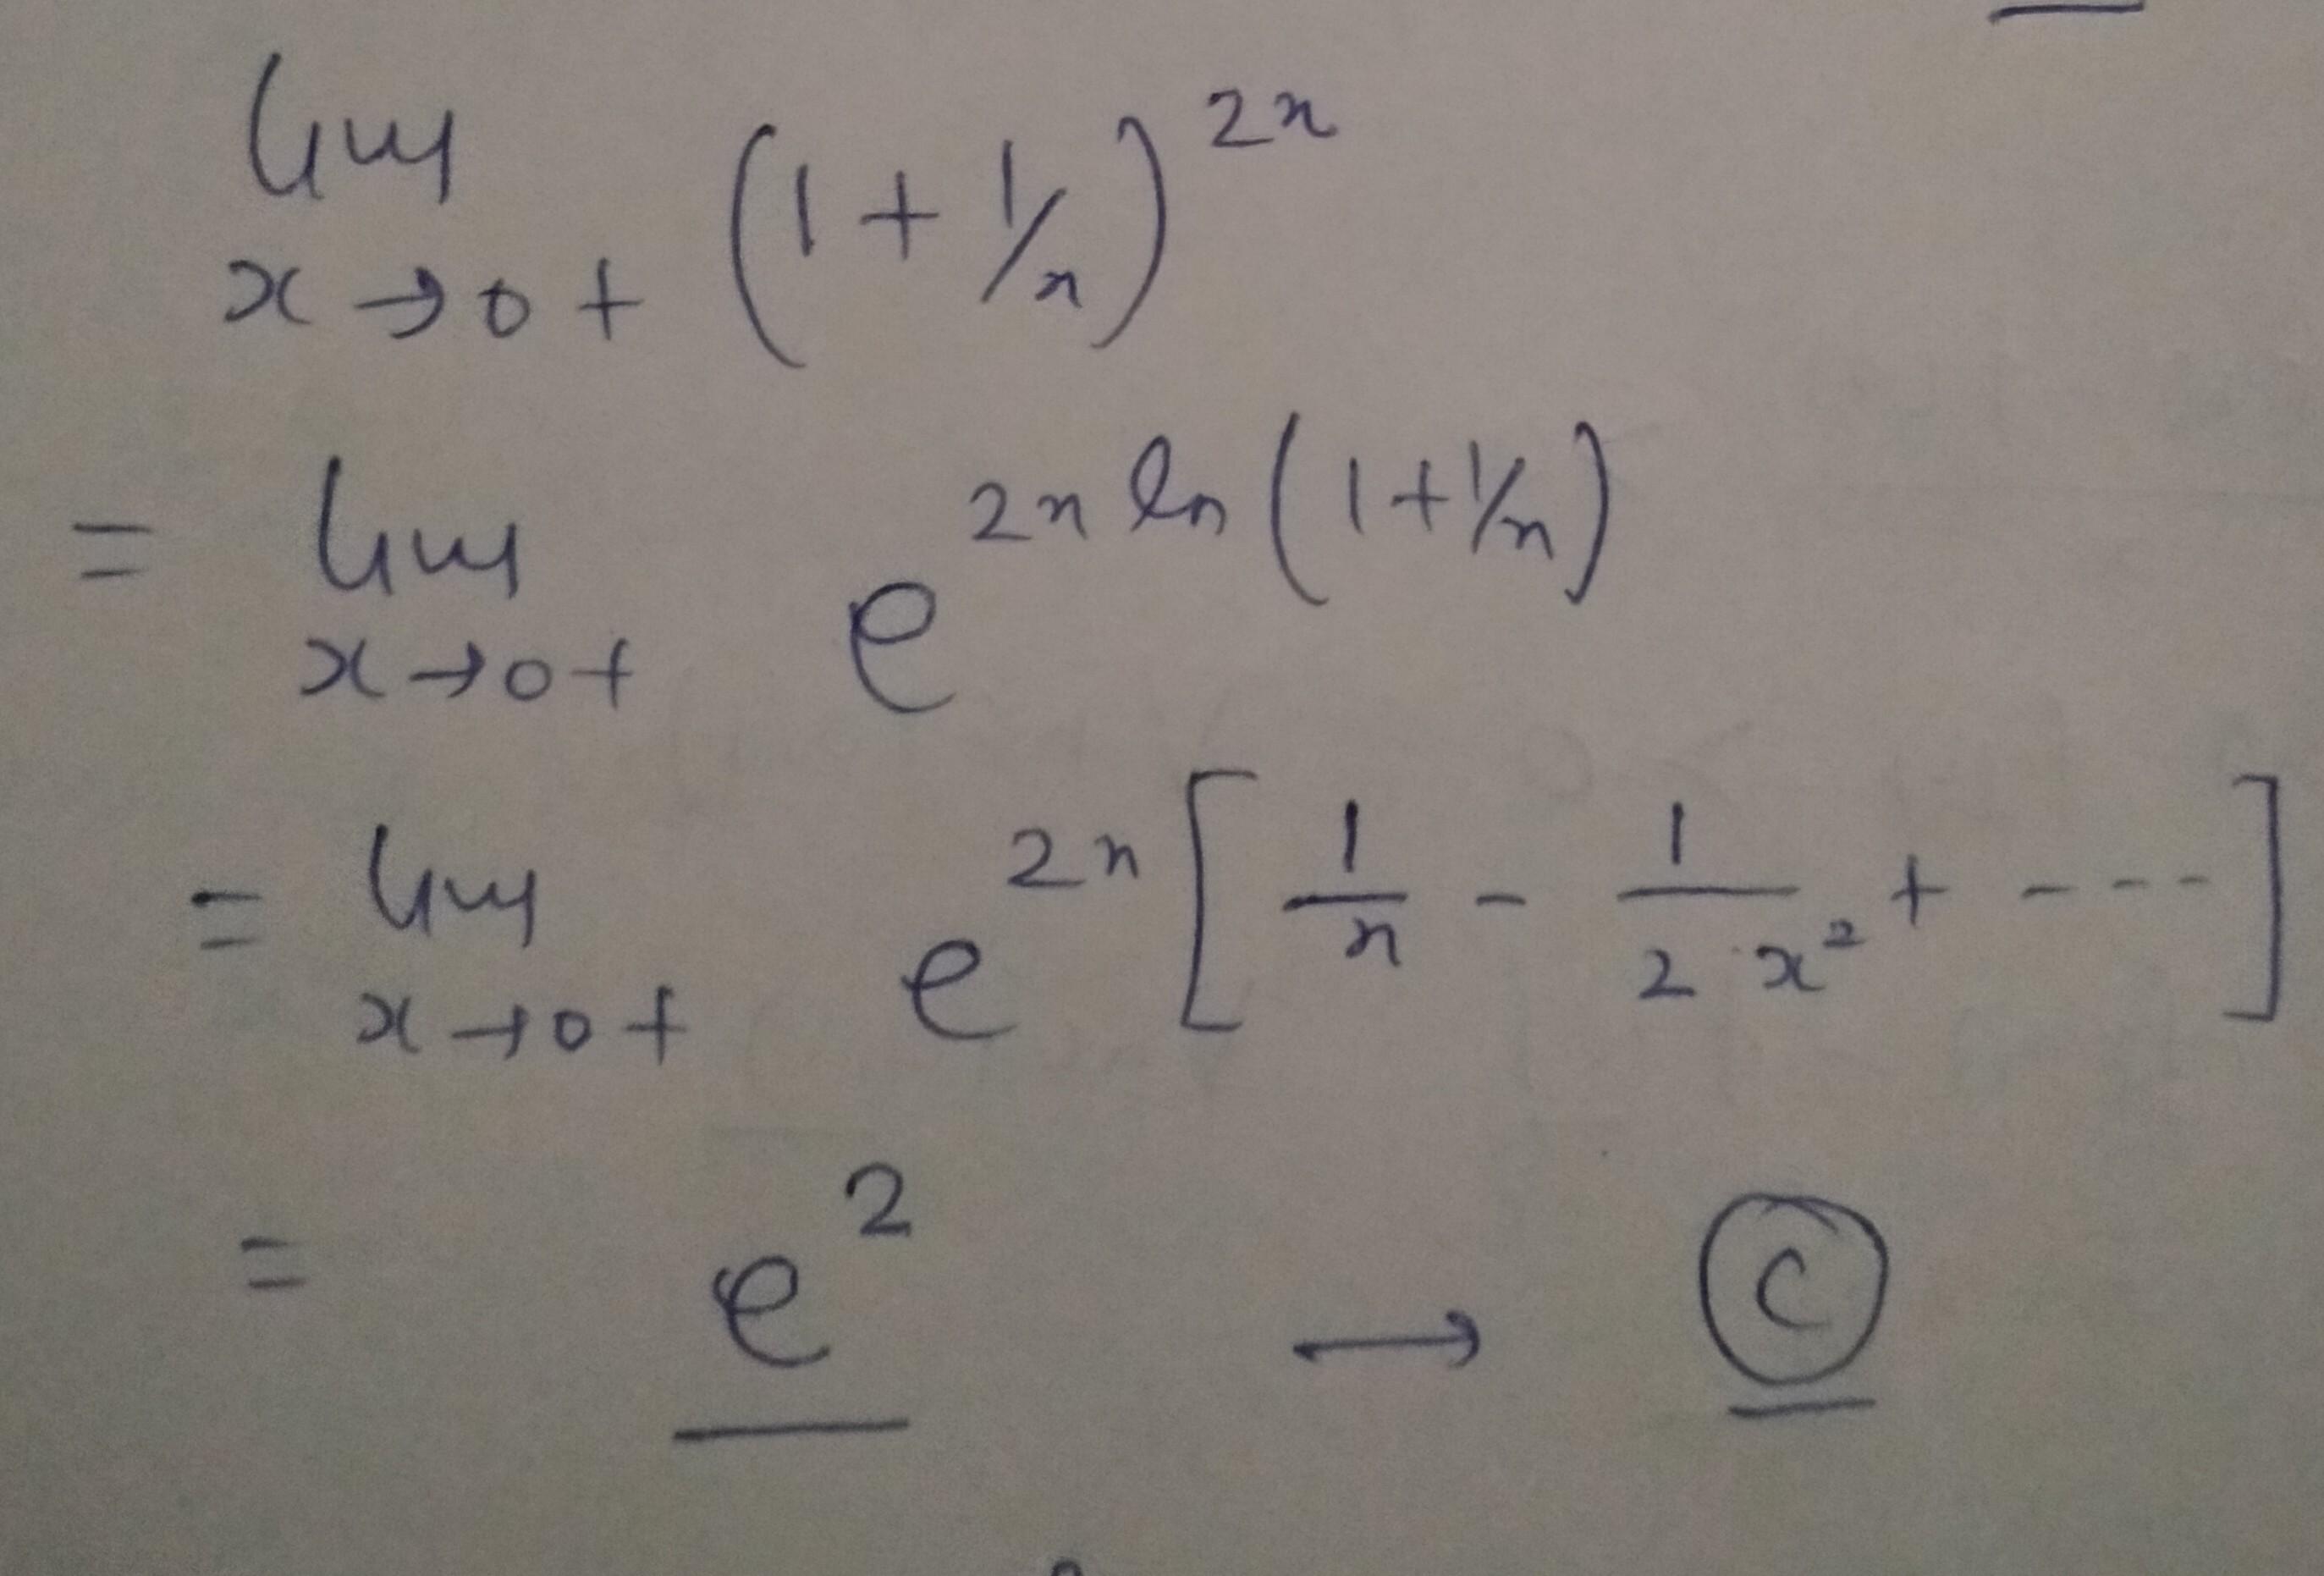 lim x→0+ (1 + 1/x)^2x
= lim x→0+ e^2x ln (1 + 1/x)
= lim x→0+ e^2x [1/x - 1/2x² + ----]
= e² → C